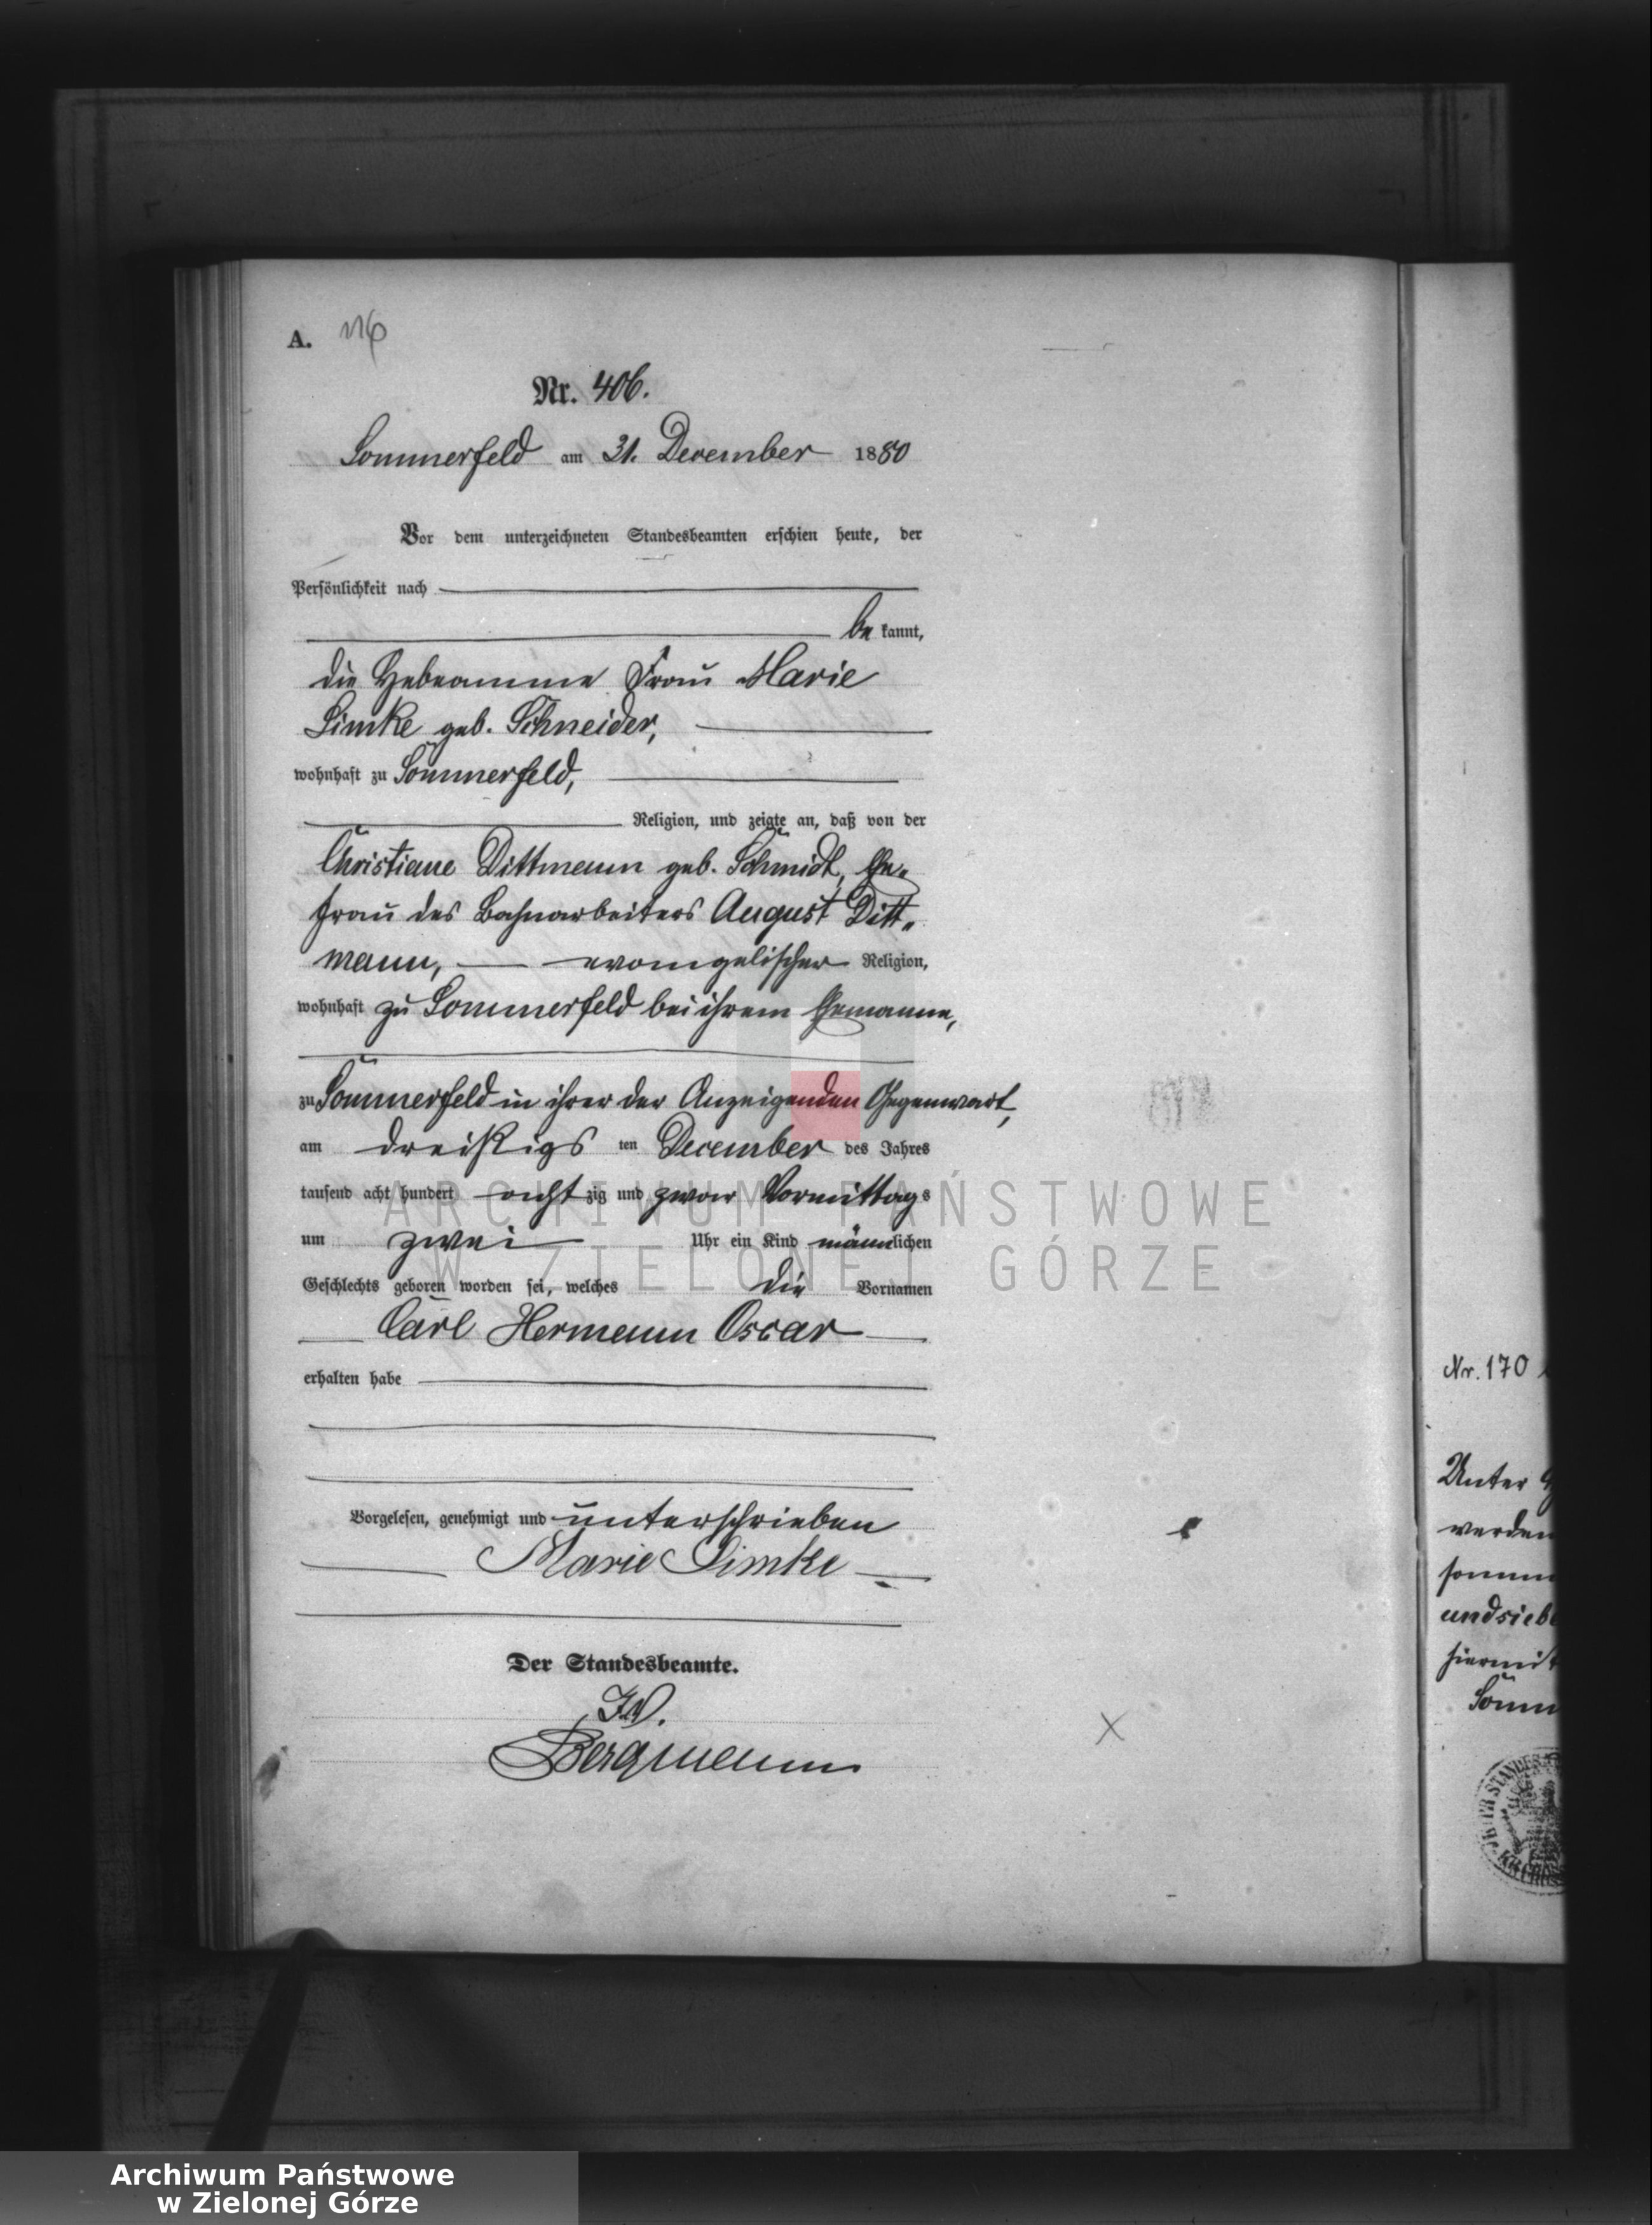 A. 116
Nr. 406.
Sommerfeld am 31. December 1880
Vor dem unterzeichneten Standesbeamten erschien heute, der
Persönlichkeit nach
be kannt,
die Hebeamme Frau Marie
Simke geb. Schneider,
wohnhaft zu Sommerfeld,
Religion, und zeigte an, daß von der
Christiane Dittmann geb. Schmidt, Ehe-
frau des Bahnarbeiters August Ditt-
mann, evangelischer Religion,
wohnhaft zu Sommerfeld bei ihrem Ehemanne,
zu Sommerfeld in ihrer der Anzeigenden Gegenwart,
am dreißigs ten December des Jahres
tausend acht hundert acht zig und zwar Vormittags
um zwei Uhr ein Kind männlichen
Geschlechts geboren worden sei, welches die Vornamen
Carl Hermann Oscar
erhalten habe
Vorgelesen, genehmigt und unterschrieben
Marie Simke
Der Standesbeamte.
I.V.
Bergmann
Nr. 170
Unter
werden
undsieb
hiermit
Somm
ARCHIWUM PAŃSTWOWE
W ZIELONEJ GÓRZE
Archiwum Państwowe
w Zielonej Górze